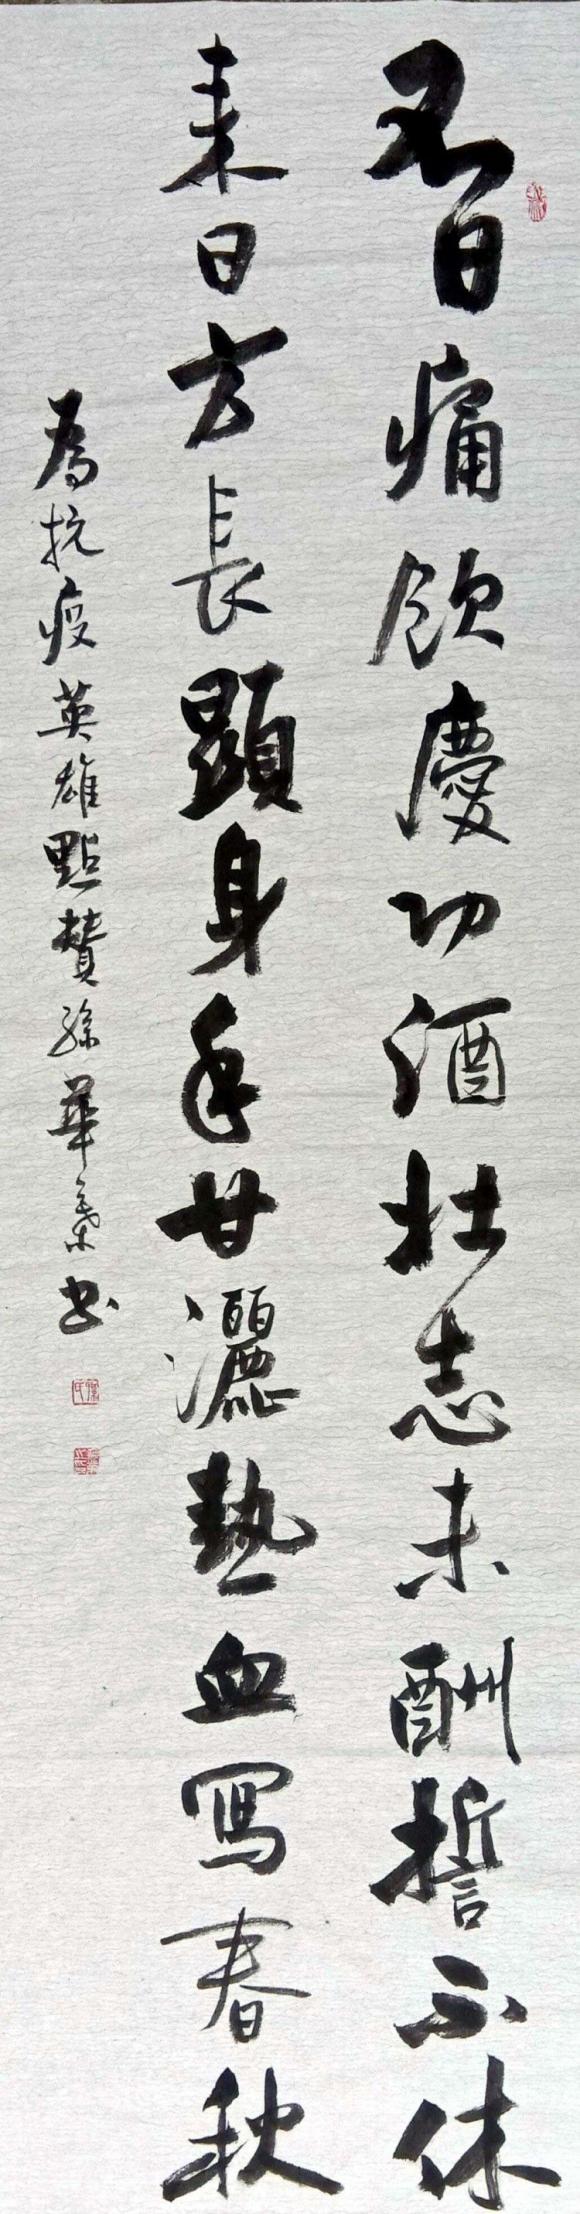 今日痛飲慶功酒壮志未酬誓不休
来日方長顯身手甘灑熱血寫春秋
為抗疫英雄點贊孫華書